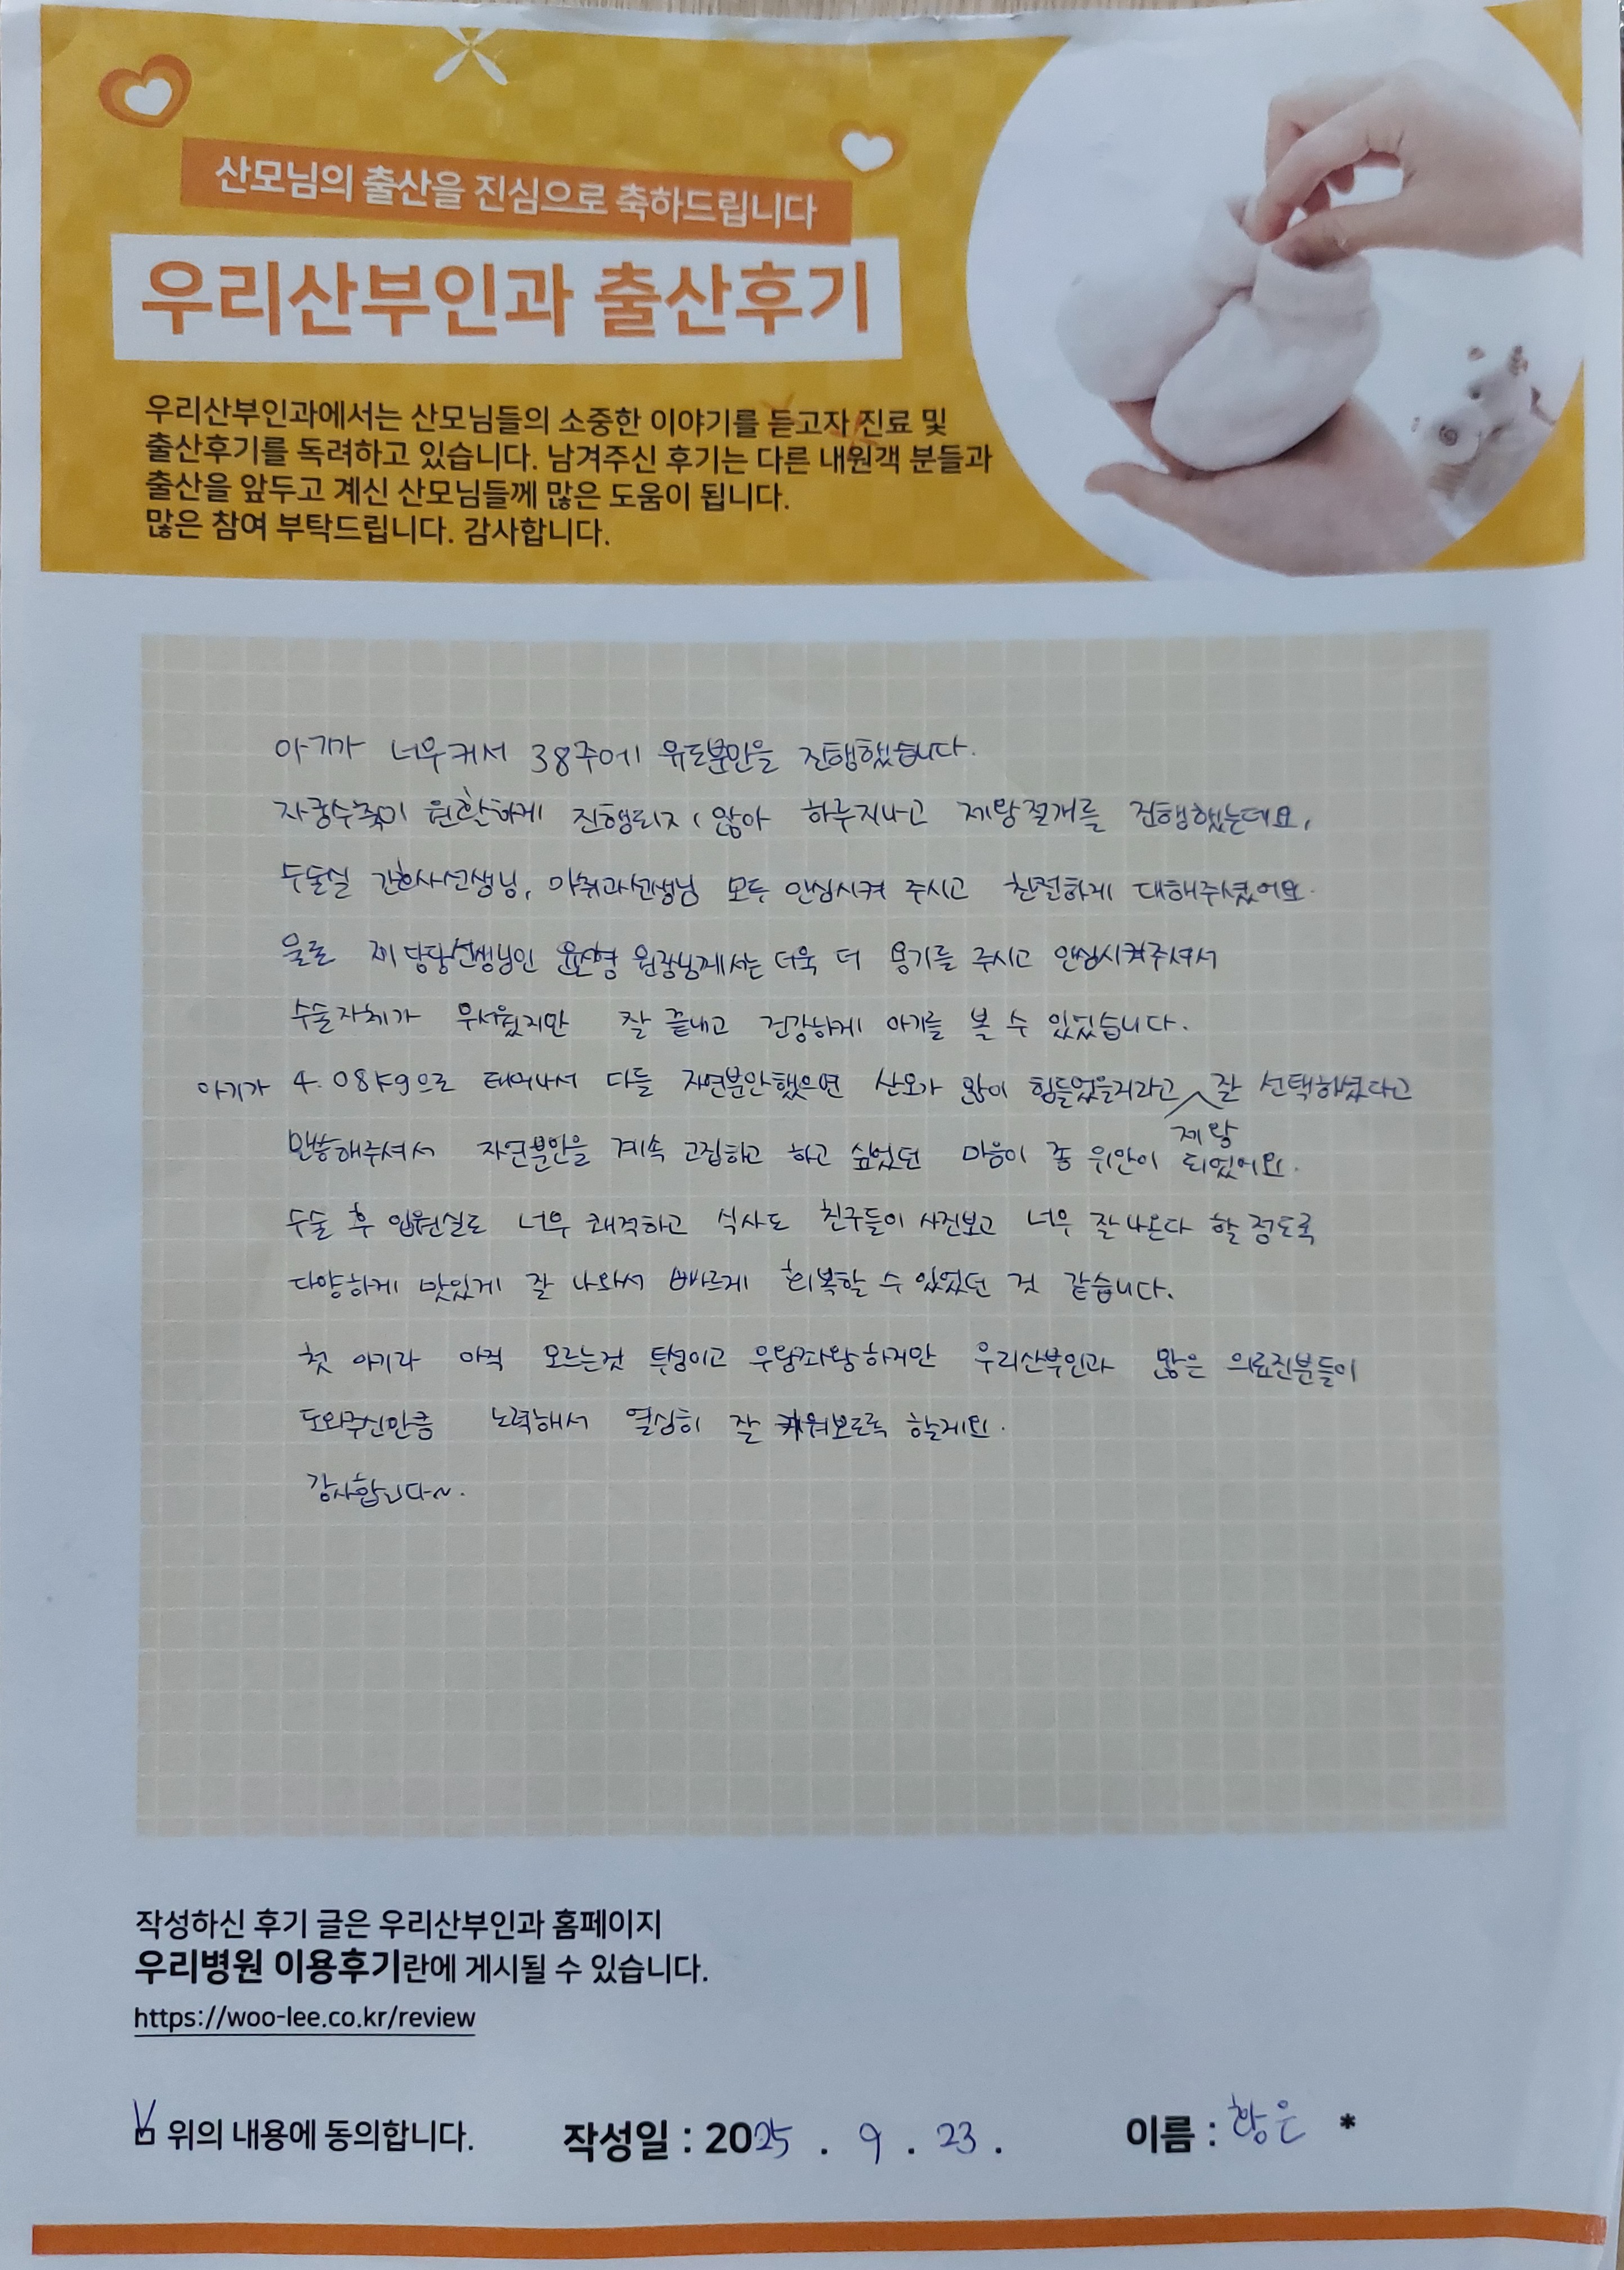 산모님의 출산을 진심으로 축하드립니다
우리산부인과 출산후기
우리산부인과에서는 산모님들의 소중한 이야기를 듣고자 진료 및
출산후기를 독려하고 있습니다. 남겨주신 후기는 다른 내원객 분들과
출산을 앞두고 계신 산모님들께 많은 도움이 됩니다.
많은 참여 부탁드립니다. 감사합니다.
아기가 너무커서 38주에 유도분만을 진행했습니다.
자궁수축이 원활하게 진행되지 않아 하루지나고 제왕절개를 진행했는데요,
수술실 간호사선생님, 마취과선생님 모두 안심시켜 주시고 친절하게 대해주셨어요.
물론 제 담당선생님인 원장님께서는 더욱 더 용기를 주시고 안심시켜주셔서
수술자체가 무서웠지만 잘 끝내고 건강하게 아기를 볼 수 있었습니다.
아기가 4.08kg으로 태어나서 다들 자연분만했으면 산모가 많이 힘들었을거라고 잘 선택하셨다고
제왕
말씀해주셔서 자연분만을 계속 고집하고 하고 싶었던 마음이 좀 위안이 되었어요.
수술 후 입원실도 너무 쾌적하고 식사도 친구들이 사진보고 너무 잘나온다 할정도록
다양하게 맛있게 잘 나와서 빠르게 회복할 수 있었던 것 같습니다.
첫 아기라 아직 모르는것 투성이고 우왕좌왕하지만 우리산부인과 많은 의료진분들이
도와주신만큼 노력해서 열심히 잘 키워보도록 할게요.
감사합니다~.
작성하신 후기 글은 우리산부인과 홈페이지
우리병원 이용후기란에 게시될 수 있습니다.
https://woo-lee.co.kr/review
위의 내용에 동의합니다. 작성일 : 2025 . 9 . 23 . 이름 : 황은 *